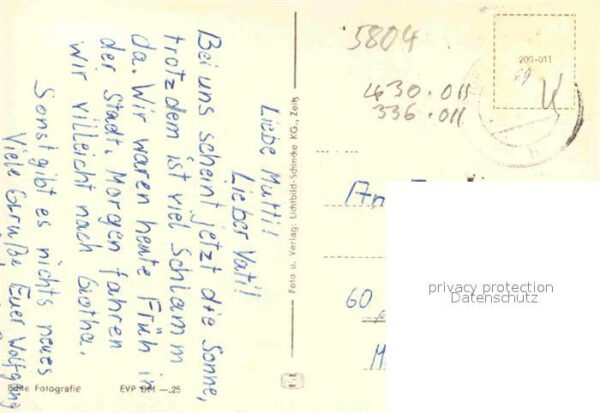 Liebe Mutti!
Lieber Vati!
Bei uns scheint jetzt die Sonne,
trotzdem ist viel Schlamm
da. Wir waren heute Früh in
der Stadt. Morgen fahren
wir villeicht nach Gotha.
Sonst gibt es nichts neues
Viele Grüße Euer Wolfgang
Echte Fotografie EVP DM —.25
Foto u. Verlag: Lichtbild-Schincke KG., Zeitz
5804
430.011
336.011
200-011
An
60
privacy protection
Datenschutz